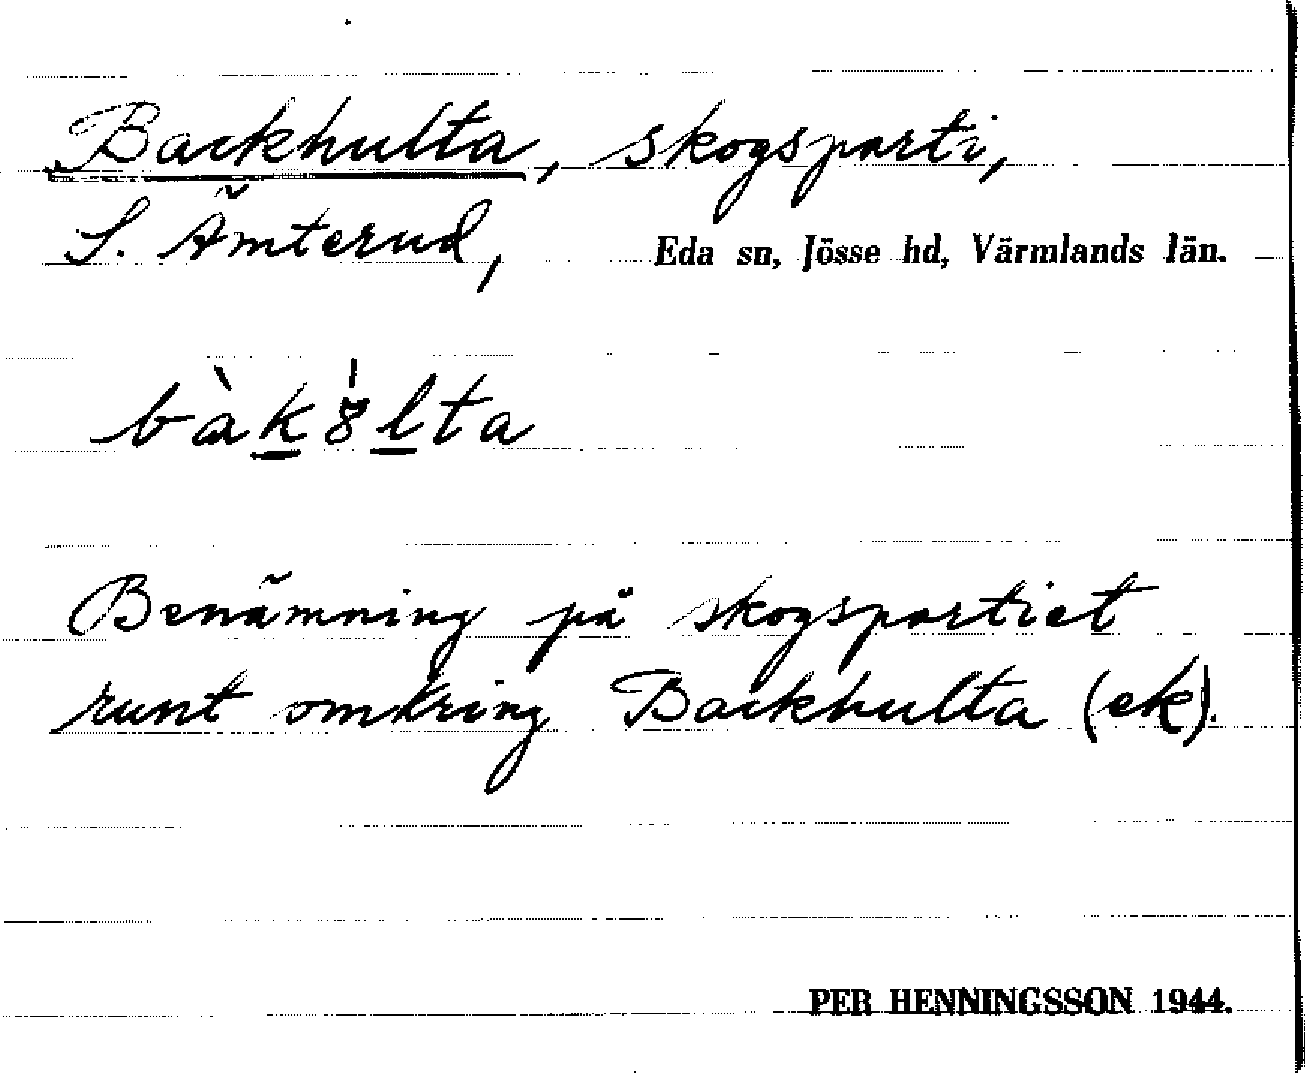 Backhulta, skogsparti,
S. Ämterud, Eda sn, Jösse hd, Värmlands län.
bàk8̍lta
Benämning på skogspartiet
runt omkring Backhulta (ek).
PER HENNINGSSON 1944.